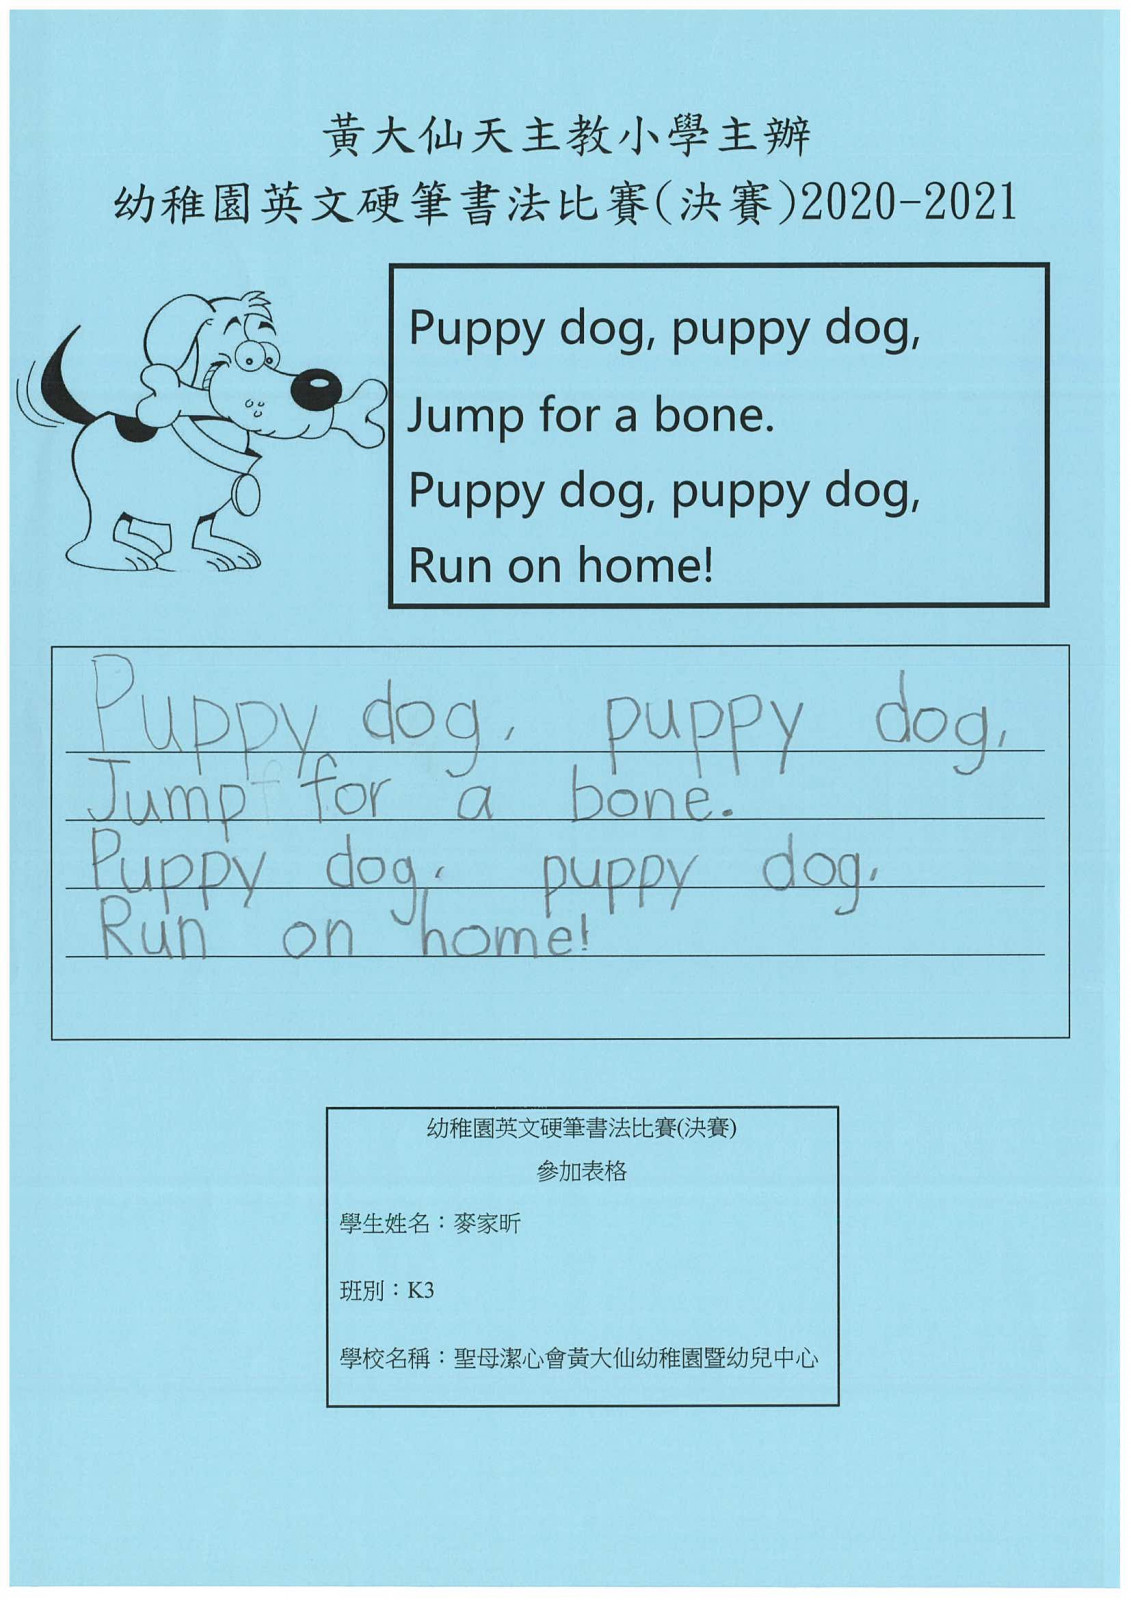 黃大仙天主教小學主辦
幼稚園英文硬筆書法比賽(決賽)2020-2021
Puppy dog, puppy dog,
Jump for a bone.
Puppy dog, puppy dog,
Run on home!
Puppy dog, puppy dog,
Jump for a bone.
Puppy dog, puppy dog,
Run on home!
幼稚園英文硬筆書法比賽(決賽)
參加表格
學生姓名：麥家昕
班別：K3
學校名稱：聖母潔心會黃大仙幼稚園暨幼兒中心